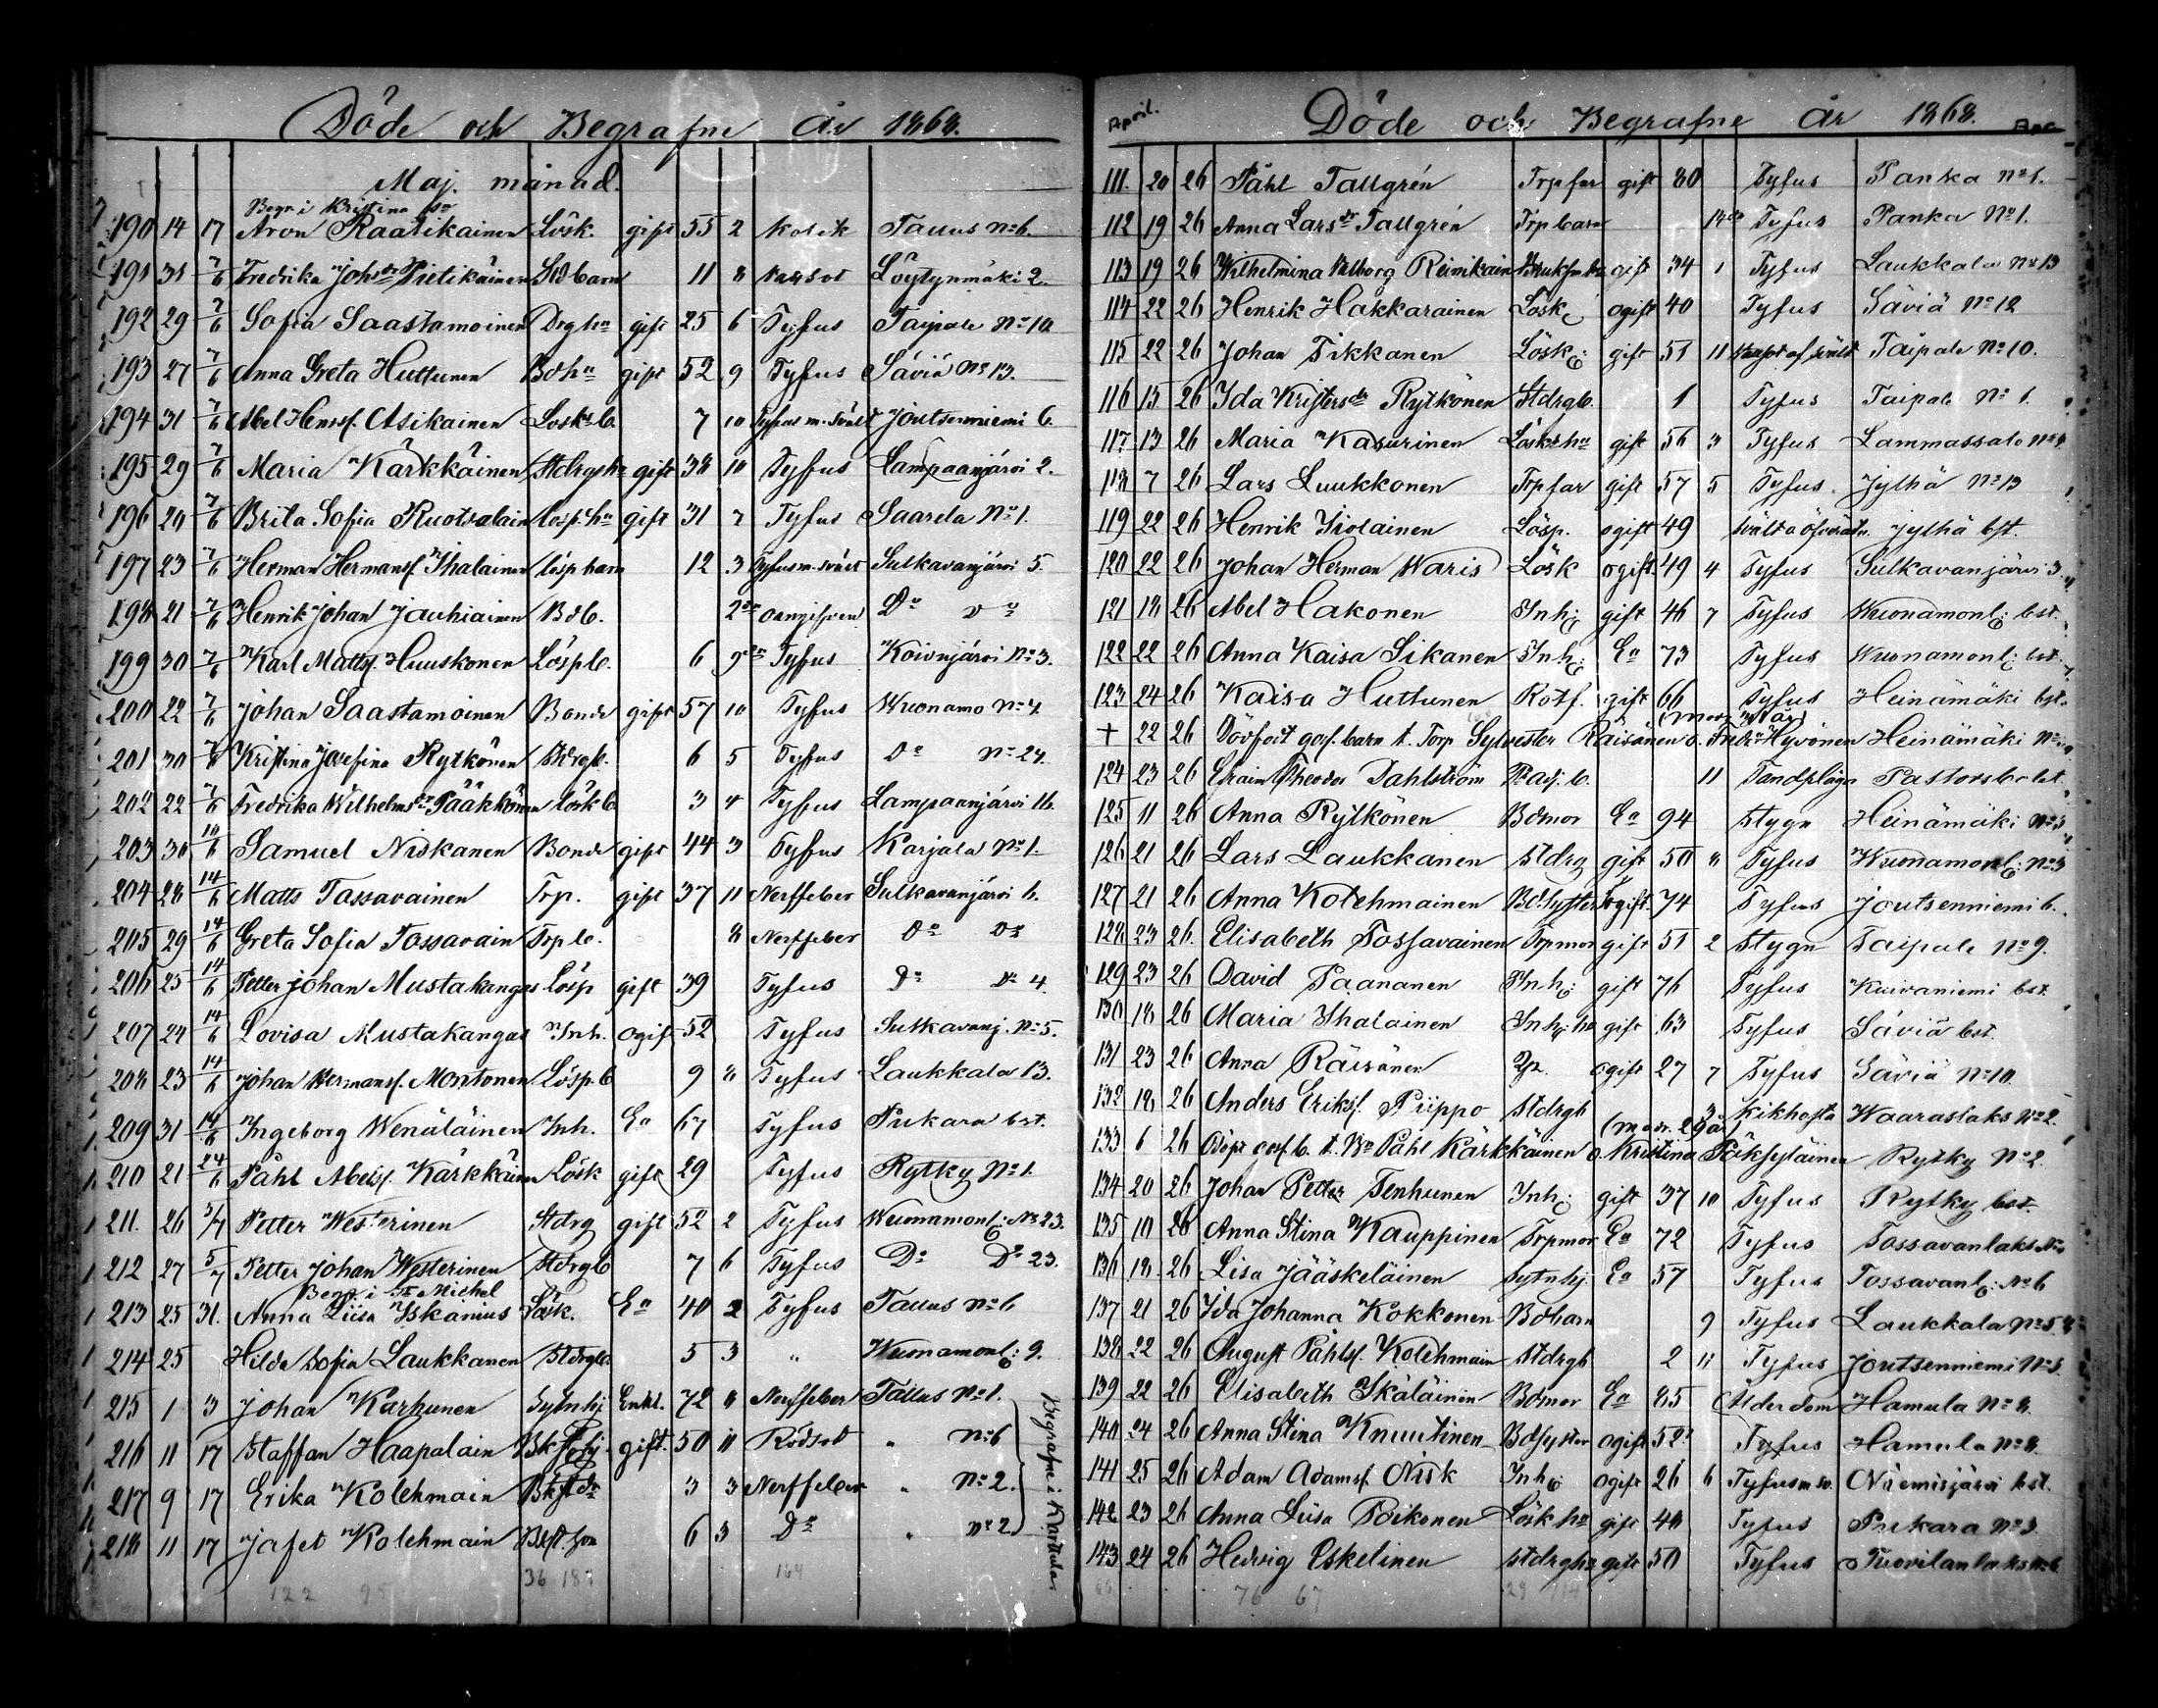 Döde och Begrafne år 1868.
Maj. månad.
Begr. i Kristina
190 14 17 Aron Raatikainen Lösk. gift 55 2 Kolik Tallus No 6.
191 31 7/6 Fredrika Johsdr Pietikäinen barn 11 8 Löytynmäki 2.
192 29 7/6 Sofia Saastamoinen Drghu gift 25 6 Tyfus Taipale No 10
193 27 7/6 Anna Greta Huttunen Bdhu gift 52 9 Tyfus Säviä No 13.
194 31 7/6 Abel Henrsf. Asikainen Losk b. 7 10 Tyfus m. svält Joutsenniemi 6.
195 29 7/6 Maria Kärkkäinen Stdrghu gift 38 10 Tyfus Lampaanjärvi 2.
196 20 7/6 Brita Sofia Ruotsalain Losp. hu gift 31 7 Tyfus Saarela No 1.
197 23 7/6 Herman Hermansf. Ihalainen Lösp barn 12 3 Tyfus m. svält Sulkavanjärvi 5.
198 21 7/6 Henrik Johan Jauhiainen Bdb. oangifven Do Do
199 30 7/6 Karl Mattsf. Huuskonen Löspb. 6 Tyfus Koivujärvi No 3.
200 22 7/6 Johan Saastamoinen Bonde gift 57 10 Tyfus Wuonamo No 4
201 30 7/6 Kristina Josefina Rytkönen Stdrgb. 6 5 Tyfus Do No 24.
202 22 7/6 Fredrika Wilhelmsdr Pääkkönen Lösk b 3 4 Tyfus Lampaanjärvi 16.
203 30 Samuel Niskanen Bonde gift 44 3 Tyfus Karjala No 1.
204 28 14/6 Matts Tossavainen Trp. gift 37 11 Nerffeber Sulkavanjärvi 6.
205 29 14/6 Greta Sofia Tossavain Trp b. 8 Nerffeber Do Do
206 25 14/6 Petter Johan Mustakangas Lösp gift 39 Tyfus Do Do 4.
207 24 14/6 Lovisa Mustakangas Inh. ogift 52 Tyfus Sulkavanj. No 5.
208 23 14/6 Johan Hermansf. Montonen Lösp. b 9 8 Tyfus Laukkala 13.
209 31 14/6 Ingeborg Wenäläinen Inh. Ea 67 Tyfus Pukara bst.
210 21 24/6 Påhl Abelsf. Kärkkäinen Lösk gift 29 Tyfus Rytky No 1.
211. 26 5/7 Petter Westerinen Stdrg gift 52 2 Tyfus Wuonamonl: No 23.
212 27 5/7 Petter Johan Westerinen Stdrgb 7 6 Tyfus Do Do 23.
Begr. i St Michel
213 25 31. Anna Liisa Iskanius Lösk. Ea 40 2 Tyfus Tallus No 6
214 25 Hilda Sofia Laukkanen Stdrgb. 5 3 " Wuonamonl: 9.
215 1 3 Johan Karhunen Sytnhj Enkl. 72 8 Nerffeber Tallus No 1.
216 11 17 Staffan Haapalain gift. 50 11 Rödsot " No 6
217 9 17 Erika Kolehmain 3 3 Nerffeber " No 2.
218 11 17 Jafet Kolehmain 6 3 Do " No 2
Begrafne i Karttula.
122 95 36 187 164
April. Döde och Begrafne år 1868.
111. 20 26 Påhl Tallgrén Trpfar gift 80 Tyfus Panka No 1.
112 19 26 Anna Larsdr Tallgrén Trpbarn Tyfus Panka No 1.
113 19 26 Wilhelmina Walborg Reinikain gift 34 1 Tyfus Laukkala No 13
114 22 26 Henrik Hakkarainen Lösk: ogift 40 Tyfus Säviä No 12
115 22 26 Johan Tikkanen Lösk: gift 51 11 af svält Taipale No 10.
116 15 26 Ida Kristersdr Rytkönen Stdrgb. 1 Tyfus Taipale No 1.
117 13 26 Maria Kasurinen Löskhu gift 56 3 Tyfus Lammassalo No 4.
118 7 26 Lars Luukkonen Trpfar gift 57 5 Tyfus Jylhä No 13
119 22 26 Henrik Wiolainen Lösp. ogift 49 Jylhä bst.
120 22 26 Johan Herman Waris Lösk ogift 49 4 Tyfus Sulkavanjärvi 3.
121 18 26 Abel Hakonen Inh: gift 46 7 Tyfus Wuonamonl: bst.
122 22 26 Anna Kaisa Sikanen Inh: Ea 73 Tyfus Wuonamonl: bst.
123 24 26 Kaisa Huttunen Rotf. gift 66 Tyfus Heinämäki bst.
+ 22 26 Dövfödt gosf. barn t. Torp Sylvester Räisänen o. Fredr. Hyvönen Heinämäki
124 23 26 Efraim Theodor Dahlström Past. b. 11 Tandplågn Pastorsbolet.
125 11 26 Anna Rytkönen Bdmor Ea 94 Stygn Heinämäki No 3
126 21 26 Lars Laukkanen Stdrg gift 50 8 Tyfus Wuonamonl: No 3
127 21 26 Anna Kolehmainen Bdsyster ogift 74 Tyfus Joutsenniemi 6.
128 23 26. Elisabeth Tossavainen Trpmor gift 51 2 Stygn Taipale No 9.
129 23 26 David Paananen Inh: gift 76 Tyfus Kuivaniemi bst.
130 18 26 Maria Ihalainen Inh: hu gift 63 Tyfus Säviä bst.
131 23 26 Anna Räisänen Pig. ogift 27 7 Tyfus Säviä No 10.
132 18 26 Anders Eriksf. Piippo Stdrgb 3 Kikhosta Waaraslaks No 2.
(modr. 29 år)
133 6 26 b. t. Bo Påhl Kärkkäinen o. Kristina Rytky No 2.
134 20 26 Johan Petter Tenhunen Inh: gift 37 10 Tyfus Rytky bst.
135 10 26 Anna Stina Kauppinen Trpmor Ea 72 Tyfus Tossavanlaks
136 18 26 Lisa Jääskeläinen Sytnhj. Ea 57 Tyfus Tossavanl: No 6
137 21 26 Ida Johanna Kokkonen Bdbarn 9 Tyfus Laukkala No 5
138 22 26 August Påhlsf. Kolehmain Stdrgb 2 11 Tyfus Joutsenniemi No 3.
139 22 26 Elisabeth Ikäläinen Bdmor Ea 85 Ålderdom Hamula No 8.
140 24 26 Anna Stina Knuutinen Bdsyster ogift 52 Tyfus Hamula No 8.
141 25 26 Adam Adamsf. Nisk Inh: ogift 26 6 Tyfus m sv. Niemisjärvi bst.
142 23 26 Anna Liisa Poikonen Lösk hu gift 48 Tyfus Pukara No 3
143 24 26 Hedvig Eskelinen Stdrghu gift 50 Tyfus Tuovilanlaks No 6
76 67 29